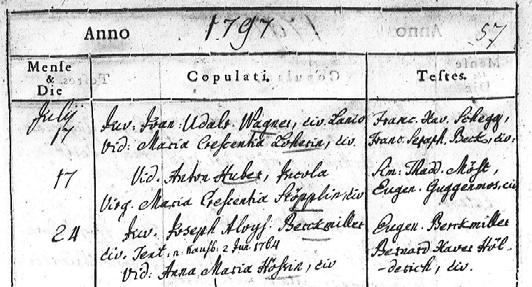 Anno 1797 57
Mense & Die
Copulati.
Testes.
Julij
17
Juv. Joan: Udalr. Wagner, civ. Lanio
Vid: Maria Crescentia Loherin, civ.
Franc. Xav. Schegg,
Franc. Seraph. Beck, civ.
17
Vid. Anton Huber, Incola
Virg. Maria Crescentia Stöpplin, civ
Sim: Thadd. Möst,
Eugen. Guggenmos, civ.
24
Juv. Joseph Aloys. Berckmiller
civ. Text. 2 Jun 1764
Vid: Anna Maria, civ
Eugen. Berckmiller
Bernard Xaver Höl-
derich, civ.